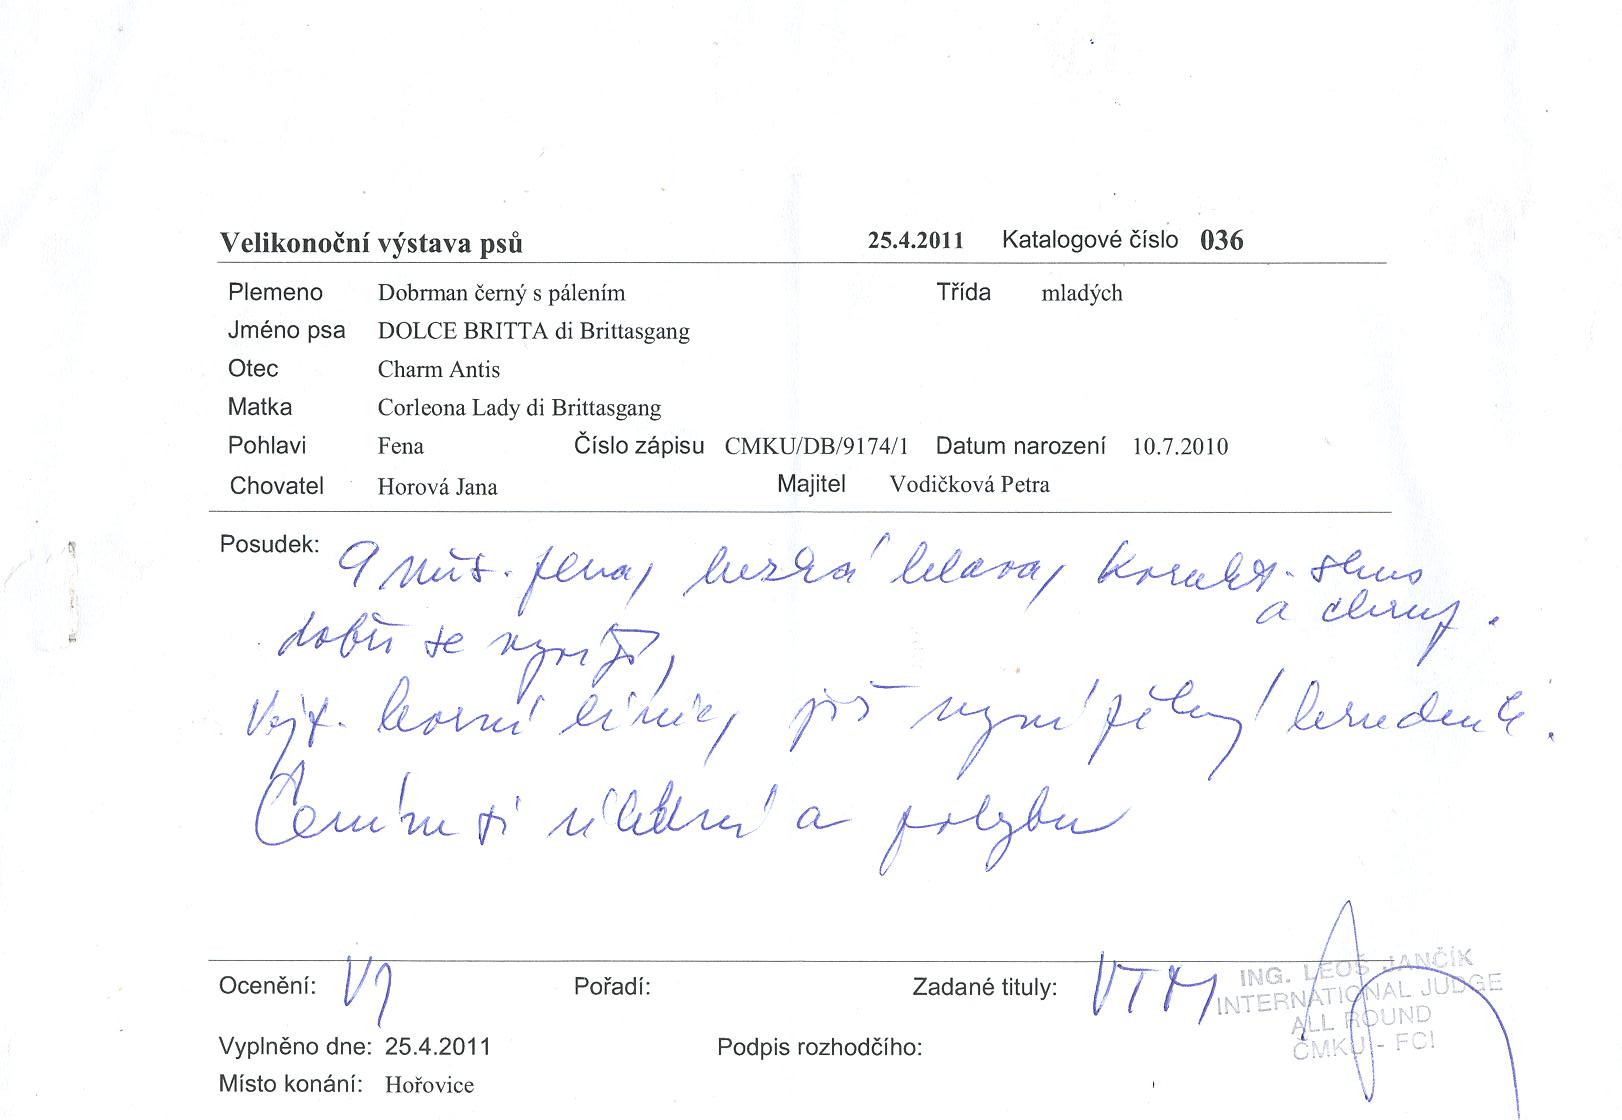 Velikonoční výstava psů 25.4.2011 Katalogové číslo 036
Plemeno Dobrman černý s pálením Třída mladých
Jméno psa DOLCE BRITTA di Brittasgang
Otec Charm Antis
Matka Corleona Lady di Brittasgang
Pohlavi Fena Číslo zápisu CMKU/DB/9174/1 Datum narození 10.7.2010
Chovatel Horová Jana Majitel Vodičková Petra
Posudek: 9 měs. fena, hezká hlava, korekt. skus
a chrup.
dobře se vyvíjí,
horní linie, již nyní pěkný hrudník.
Cením si úhlení a pohybu
Ocenění: V1 Pořadí: Zadané tituly: VTM
ING. LEOŠ JANČÍK
INTERNATIONAL JUDGE
ALL ROUND
ČMKU - FCI
Vyplněno dne: 25.4.2011 Podpis rozhodčího:
Místo konání: Hořovice